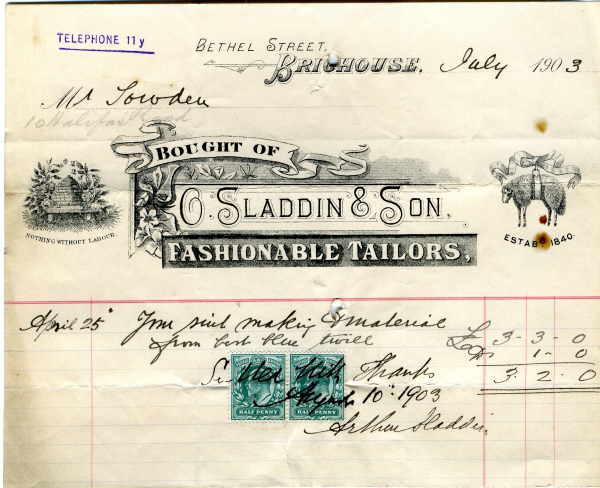 TELEPHONE 11y
BETHEL STREET,
BRIGHOUSE, July 1903
Mr Sowden
10 Halifax Road
BOUGHT OF
O. SLADDIN & SON,
FASHIONABLE TAILORS,
NOTHING WITHOUT LABOUR.
ESTABD 1840.
April 25 suit making & material
from best blue twill £ 3-3-0
1-0
With Thanks 3.2.0
HALF PENNY HALF PENNY
10. 1903
Arthur Sladdin